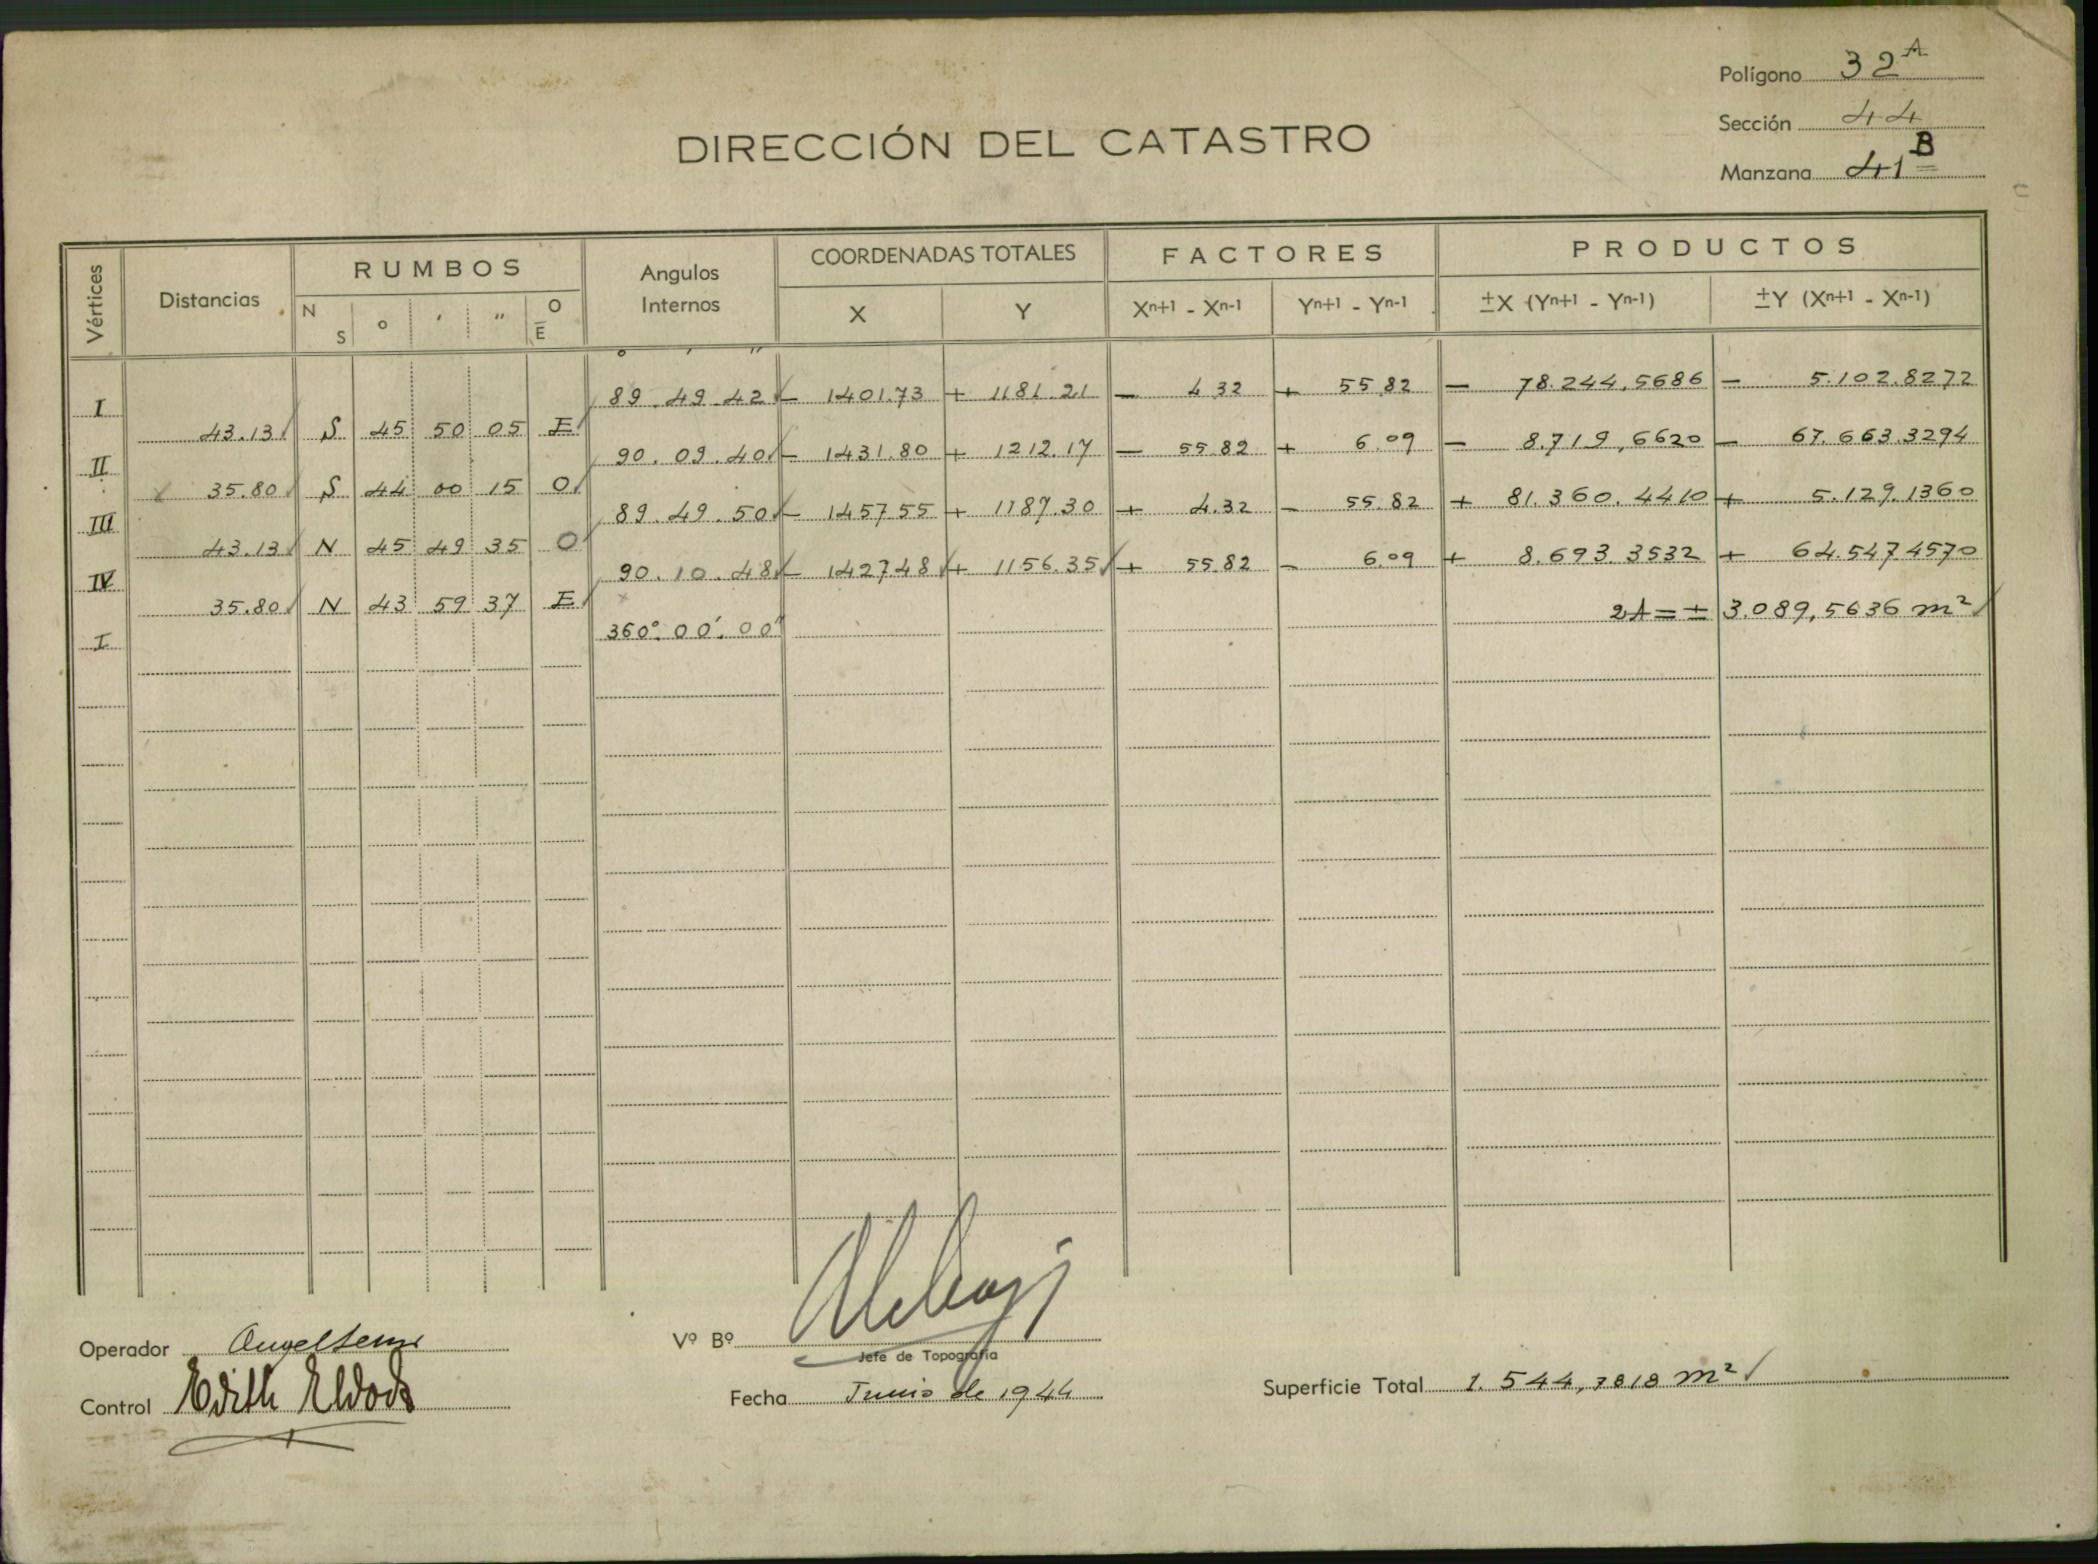 Polígono 32 A
Sección 44
Manzana 41 B
DIRECCIÓN DEL CATASTRO
Vértices Distancias RUMBOS Angulos Internos COORDENADAS TOTALES FACTORES PRODUCTOS
N S o ′ ″ O E X Y Xn+1 - Xn-1 Yn+1 - Yn-1 ±X (Yn+1 - Yn-1) ±Y (Xn+1 - Xn-1)
o ′ ″
I 89.49.42 - 1401.73 + 1181.21 - 4.32 + 55.82 - 78.244,5686 - 5.102.8272
43.13 S 45 50 05 E
II 90.09.40 - 1431.80 + 1212.17 - 55.82 + 6.09 - 8.719,6620 - 67.663.3294
35.80 S 44 00 15 O
III 89.49.50 - 1457.55 + 1187.30 + 4.32 - 55.82 + 81.360.4410 + 5.129.1360
43.13 N 45 49 35 O
IV 90.10.48 - 1427.48 + 1156.35 + 55.82 - 6.09 + 8.693.3532 + 64.547.4570
35.80 N 43 59 37 E 2A = ± 3.089,5636 m²
I 360°.00′.00″
Operador
Vº Bº
Jefe de Topografía
Control Edith
Fecha Junio de 1944
Superficie Total 1.544,7818 m²